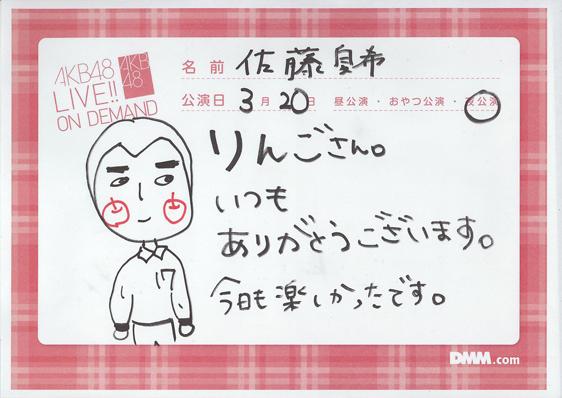 AKB48
LIVE!!
ON DEMAND
AKB
48
名前 佐藤夏希
公演日 3月20日 昼公演・おやつ公演・夜公演
りんごさん。
いつも
ありがとうございます。
今日も楽しかったです。
17
DMM.com